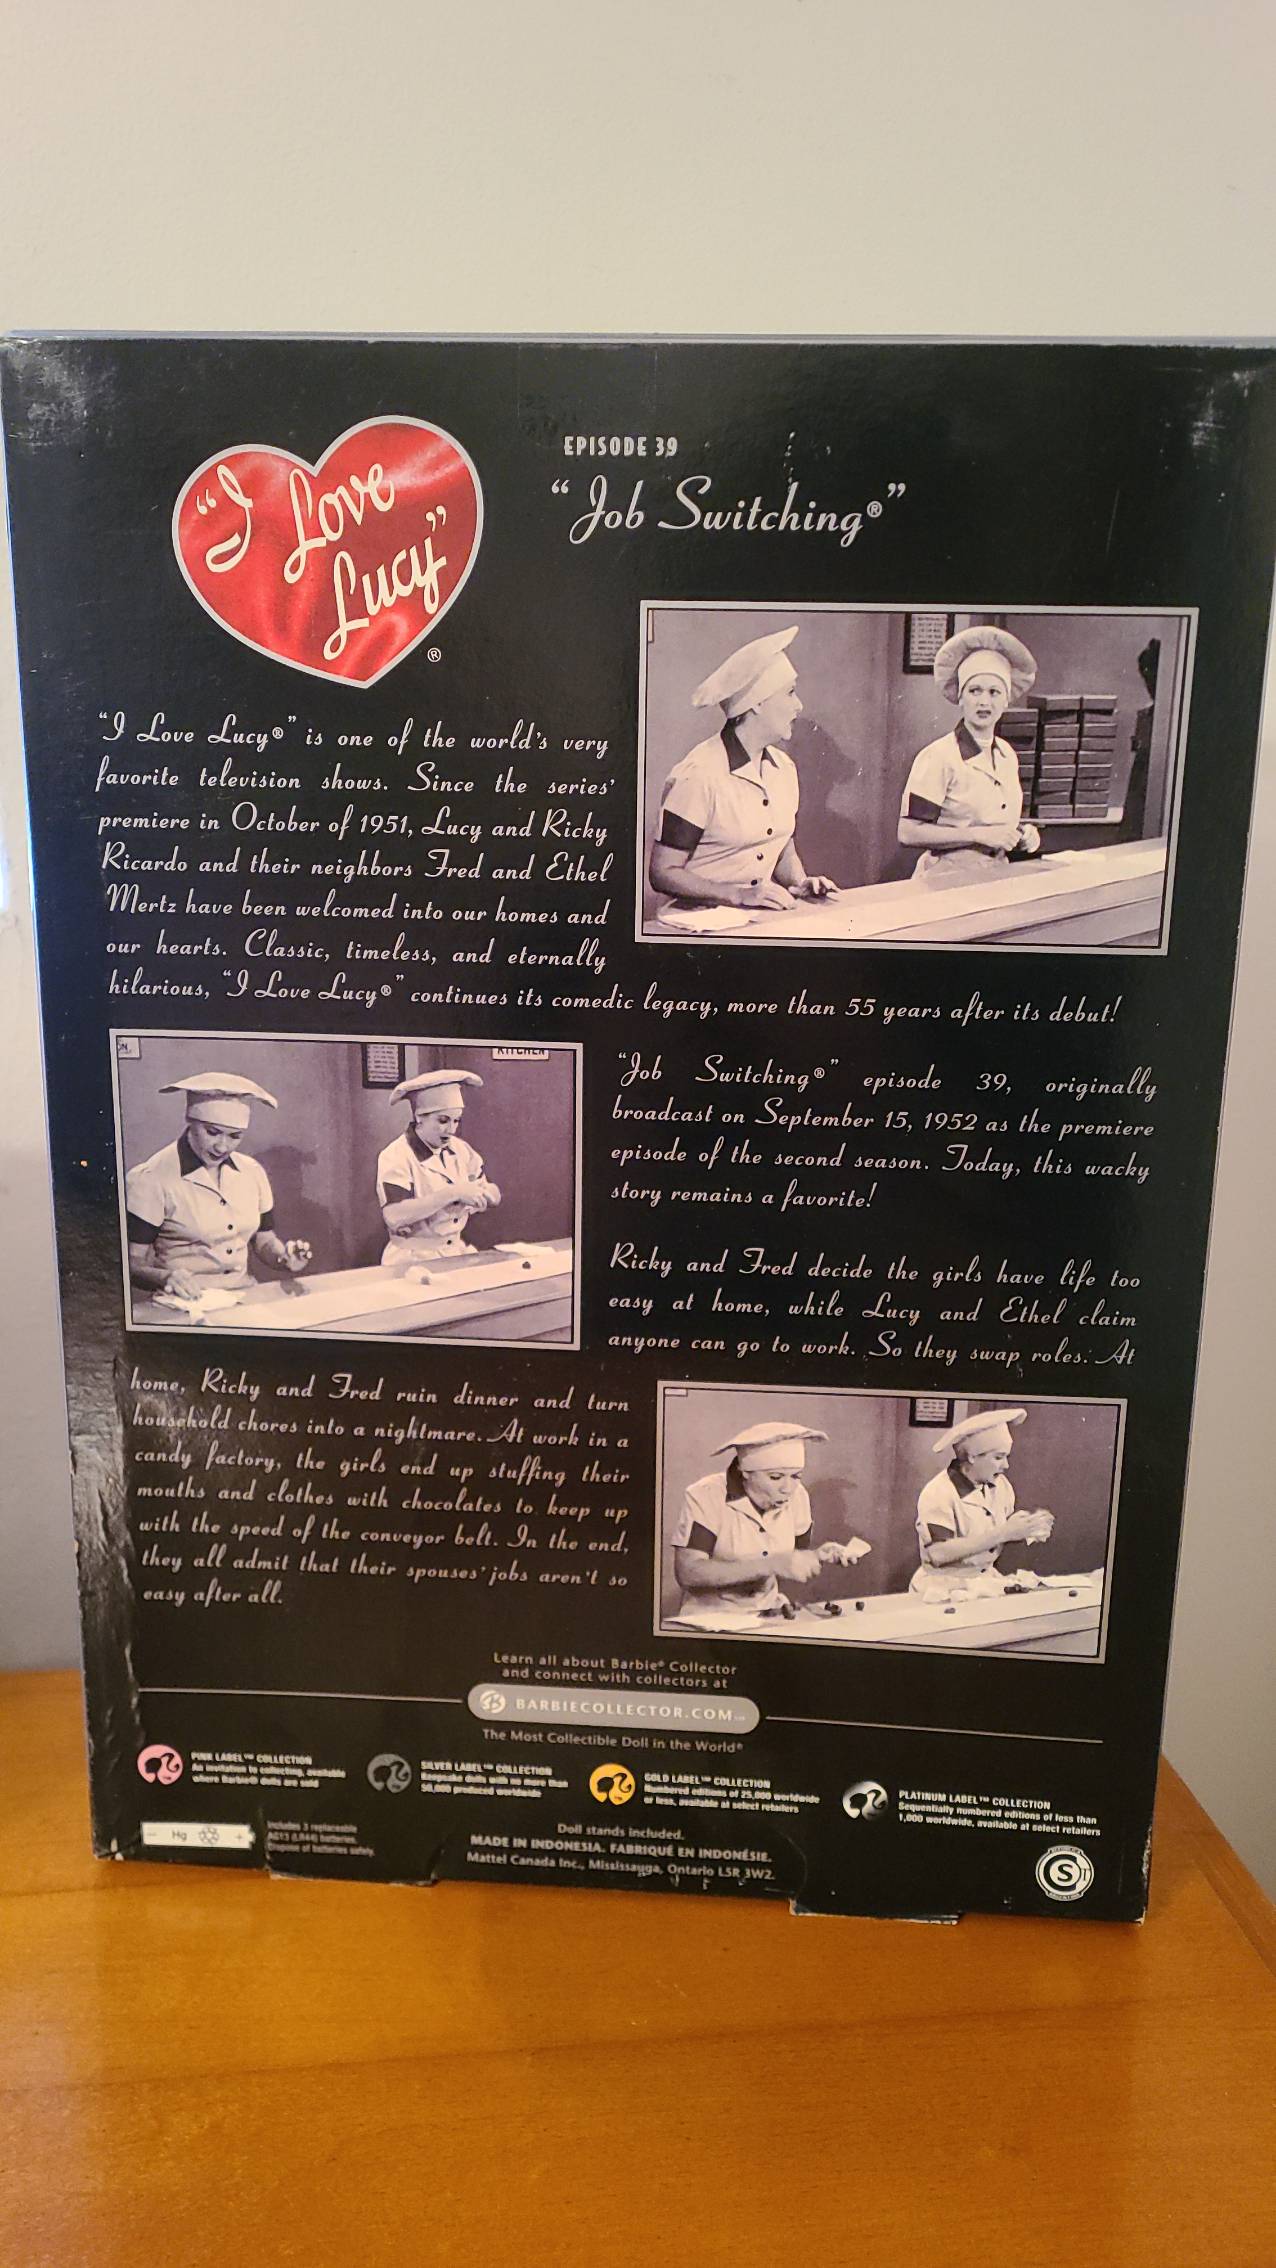 "I Love Lucy"®
EPISODE 39
"Job Switching®"
"I Love Lucy®" is one of the world's very
favorite television shows. Since the series'
premiere in October of 1951, Lucy and Ricky
Ricardo and their neighbors Fred and Ethel
Mertz have been welcomed into our homes and
our hearts. Classic, timeless, and eternally
hilarious, "I Love Lucy®" continues its comedic legacy, more than 55 years after its debut!
KITCHEN
"Job Switching®" episode 39, originally
broadcast on September 15, 1952 as the premiere
episode of the second season. Today, this wacky
story remains a favorite!
Ricky and Fred decide the girls have life too
easy at home, while Lucy and Ethel claim
anyone can go to work. So they swap roles. At
home, Ricky and Fred ruin dinner and turn
household chores into a nightmare. At work in a
candy factory, the girls end up stuffing their
mouths and clothes with chocolates to keep up
with the speed of the conveyor belt. In the end,
they all admit that their spouses' jobs aren't so
easy after all.
Learn all about Barbie® Collector
and connect with collectors at
B BARBIECOLLECTOR.COM
The Most Collectible Doll in the World®
PINK LABEL™ COLLECTION
An invitation to collecting, available
where Barbie® dolls are sold
SILVER LABEL™ COLLECTION
Keepsake dolls with no more than
50,000 produced worldwide
GOLD LABEL™ COLLECTION
Numbered editions of 25,000 worldwide
or less, available at select retailers
PLATINUM LABEL™ COLLECTION
Sequentially numbered editions of less than
1,000 worldwide, available at select retailers
- Hg +
Includes 3 replaceable
AG13 (LR44) batteries.
Dispose of batteries safely.
Doll stands included.
MADE IN INDONESIA. FABRIQUÉ EN INDONÉSIE.
Mattel Canada Inc., Mississauga, Ontario L5R 3W2.
S